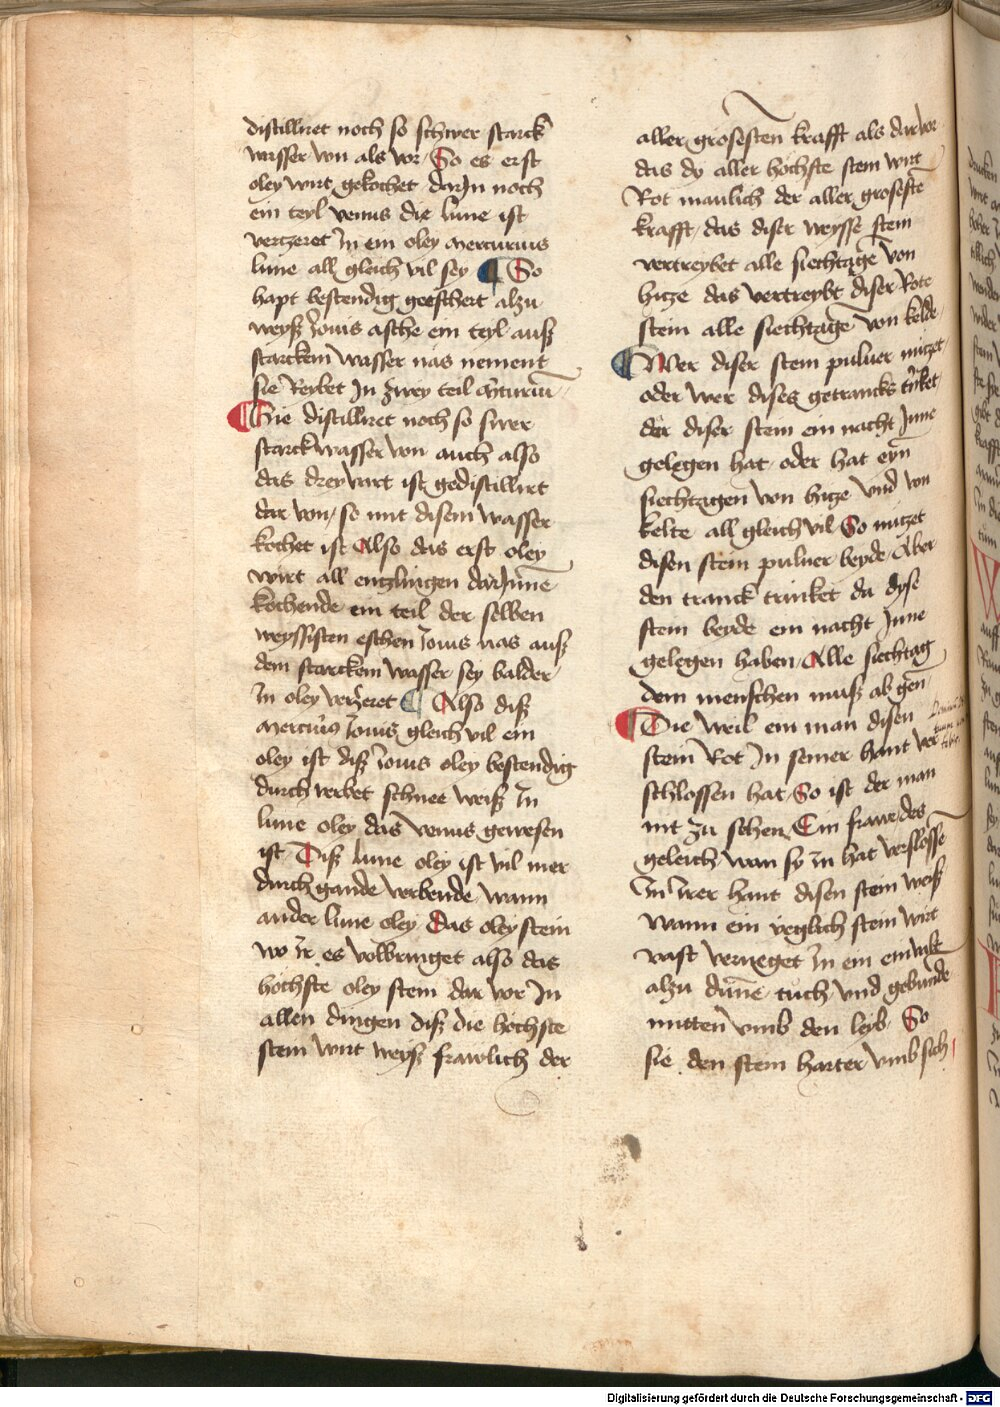 distilliret noch so schwer starck
wasser von als vor So es erst
oley wirt gekochet darJn noch
ein teyl venus die lune ist
vertzeret Jn ein oley mercurius
lune all gleich vil sey ¶ So
hapt bestendig geeschert alzu
weyß Jouis asche ein teyl auß
starckem wasser nas nement
sie Reybet Jn zwey teil
¶ Die distilliret noch so swer
starck wasser von auch also
das drey wirt ist gedistillirt
dar von so mit disem wasser
kochet ist Also das erst oley
wirt all entzlingen darJnne
kochende ein teil der selben
weyssisten eschen Jouis nas auß
dem starckem wasser sey balder
Jn oley verzeret ¶ Also diß
mercurius Jouis gleich vil ein
oley ist diß Jouis oley bestendig
durch verbet schnee weiß Jn
lune oley das venus gewesen
ist Diß lune oley ist vil mer
durch gande verbende wann
ander lune oley Das oley stein
wo Jr es volbringet also das
hochste oley stein dar vor Jn
allen dingen diß die hochste
stein wirt weyß frawlich der
aller grosesten krafft als dar vor
das dy aller hochste stein wirt
Rot manlich der aller groseste
krafft das diser weysse stein
vertreybet alle siechtage von
hitze das vertreybt diser Rote
stein alle siechtage von kelde
¶ Wer diser stein puluer nutzet
oder wer dises getrancks trinket
der diser stein ein nacht Jnne
gelegen hat oder hat eyn
siechtagen von hitze vnd von
kelte all gleich vil So nutzet
disen stein puluer beyde Aber
den tranck trinket da dyse
stein beyde ein nacht Jnne
gelegen haben Alle siechtag
dem menschen muß ab gen
¶ Die weil ein man disen
stein Rot Jn seiner hant ver
schlossen hat So ist der man
nit zu sehen Ein frawe des
geleich wan sy Jn hat verslosse
Jn Jrer hant disen stein weiß
wann ein yeglich stein wirt
vast verneget Jn ein einwikt
alzu dunne tuch vnd gebunde
mitten vmb den leyb So
sie den stein harter vmb sich
Digitalisierung gefördert durch die Deutsche Forschungsgemeinschaft - DFG